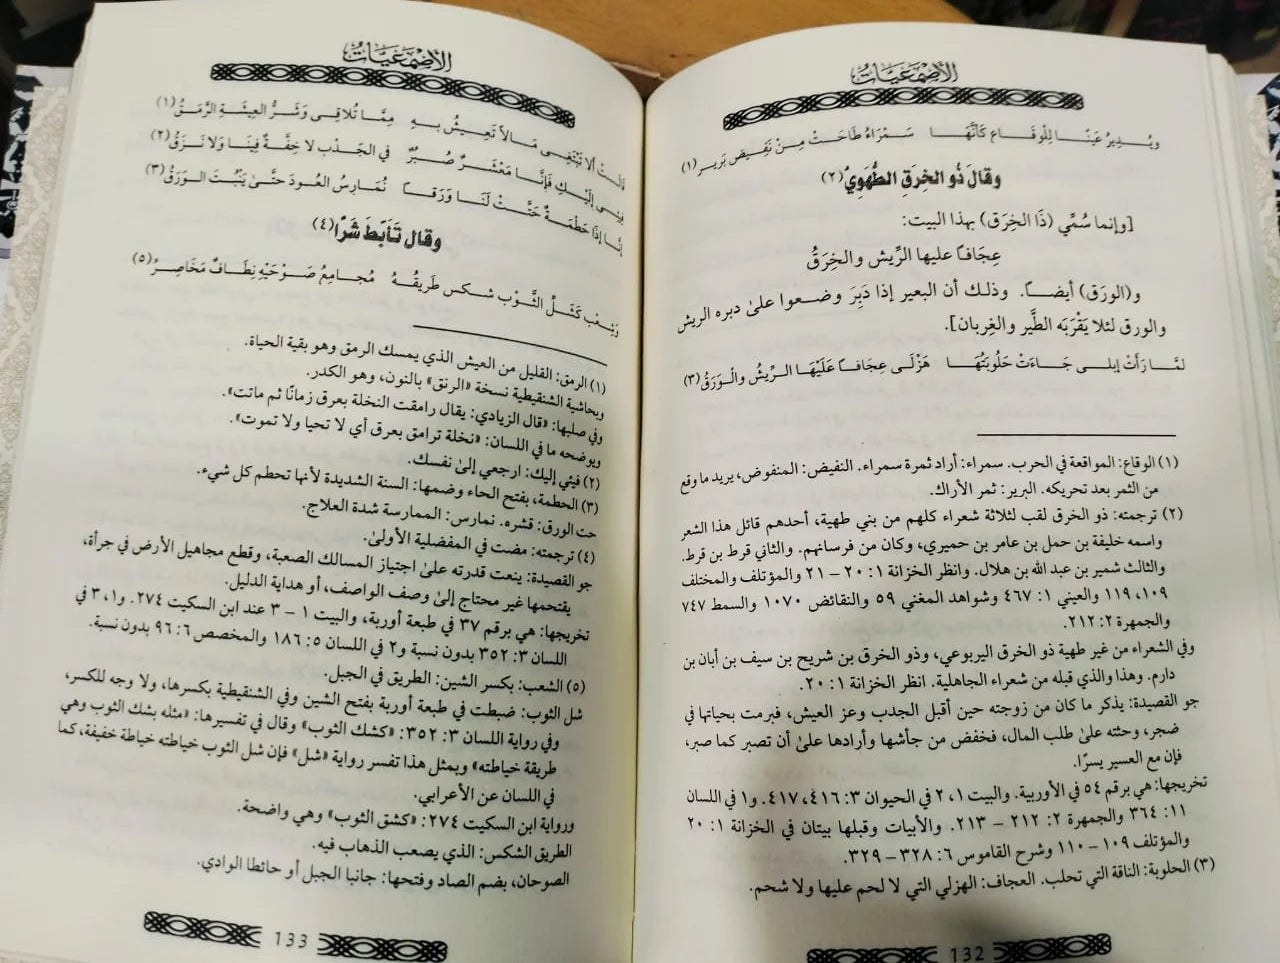 الأصمعيات
ويُدِيرُ عَيْنًا لِلْوِقَاعِ كَأَنَّهَا سَمْرَاءُ طَاحَتْ مِنْ نَفِيضِ بَرِيرِ (١)
وقال ذُو الخِرَقِ الطُّهَوِيُّ (٢)
[وإنما سُمِّي (ذَا الخِرَق) بهذا البيت:
عِجَافاً عليها الرِّيش والخِرَقُ
و(الورَق) أيضاً. وذلك أن البعير إذا دَبِرَ وضعوا علىٰ دبره الريش
والورق لئلا يَقْرَبَه الطَّير والغِربان].
لمَّا رَأَتْ إبلى جَاءَتْ حَلُوبَتُهَا هَزْلَى عِجَافاً عَلَيْهَا الرِّيشُ والْوَرَقُ (٣)
(١) الوقاع: المواقعة في الحرب. سمراء: أراد ثمرة سمراء. النفيض: المنفوض، يريد ما وقع
من الثمر بعد تحريكه. البرير: ثمر الأراك.
(٢) ترجمته: ذو الخرق لقب لثلاثة شعراء كلهم من بني طهية، أحدهم قائل هذا الشعر
واسمه خليفة بن حمل بن عامر بن حميري، وكان من فرسانهم. والثاني قرط بن قرط.
والثالث شمير بن عبد الله بن هلال. وانظر الخزانة ١: ٢٠ – ٢١ والمؤتلف والمختلف
١٠٩، ١١٩ والعيني ١: ٤٦٧ وشواهد المغني ٥٩ والنقائض ١٠٧٠ والسمط ٧٤٧
والجمهرة ٢: ٢١٢.
وفي الشعراء من غير طهية ذو الخرق اليربوعي، وذو الخرق بن شريح بن سيف بن أبان بن
دارم. وهذا والذي قبله من شعراء الجاهلية. انظر الخزانة ١: ٢٠.
جو القصيدة: يذكر ما كان من زوجته حين أقبل الجدب وعز العيش، فبرمت بحياتها في
ضجر، وحثته علىٰ طلب المال، فخفض من جأشها وأرادها علىٰ أن تصبر كما صبر،
فإن مع العسير يسرًا.
تخريجها: هي برقم ٥٤ في الأوربية. والبيت ١، ٢ في الحيوان ٣: ٤١٦، ٤١٧. و١ في اللسان
١١: ٣٦٤ والجمهرة ٢: ٢١٢ – ٢١٣. والأبيات وقبلها بيتان في الخزانة ١: ٢٠
والمؤتلف ١٠٩ – ١١٠ وشرح القاموس ٦: ٣٢٨ – ٣٢٩.
(٣) الحلوبة: الناقة التي تحلب. العجاف: الهزلي التي لا لحم عليها ولا شحم.
132
الأصمعيات
قَالَتْ أَلَا تَبْتَغِى مَالاً تَعِيشُ بِهِ مِمَّا تُلاقِى وَشَرُّ العِيشَةِ الرَّمَقُ (١)
فِيئِى إلَيْكِ فَإِنَّا مَعْشَرٌ صُبُرٌ في الجَدْبِ لا خِفَّةٌ فِينَا وَلَا نَزَقُ (٢)
إنَّا إذَا حَطْمَةٌ حَتَّتْ لَنَا وَرَقاً نُمَارِسُ العُودَ حَتَّىٰ يَنْبُتَ الوَرَقُ (٣)
وقال تَأَبَّطَ شَرًّا (٤)
وَشِعْبٍ كَشَلِّ الثَّوْبِ شكسٍ طَرِيقُهُ مُجامِعُ صَوْحَيْهِ نِطَافٌ مَخَاصِرُ (٥)
(١) الرمق: القليل من العيش الذي يمسك الرمق وهو بقية الحياة.
وبحاشية الشنقيطية نسخة «الرنق» بالنون، وهو الكدر.
وفي صلبها: «قال الزيادي: يقال رامقت النخلة بعرق زمانًا ثم ماتت».
ويوضحه ما في اللسان: «نخلة ترامق بعرق أي لا تحيا ولا تموت».
(٢) فيئي إليك: ارجعي إلىٰ نفسك.
(٣) الحطمة، بفتح الحاء وضمها: السنة الشديدة لأنها تحطم كل شيء.
حت الورق: قشره. نمارس: الممارسة شدة العلاج.
(٤) ترجمته: مضت في المفضلية الأولىٰ.
جو القصيدة: ينعت قدرته علىٰ اجتياز المسالك الصعبة، وقطع مجاهيل الأرض في جرأة،
يقتحمها غير محتاج إلىٰ وصف الواصف، أو هداية الدليل.
تخريجها: هي برقم ٣٧ في طبعة أوربة، والبيت ١ – ٣ عند ابن السكيت ٢٧٤. و١، ٣ في
اللسان ٣: ٣٥٢ بدون نسبة و٢ في اللسان ٥: ١٨٦ والمخصص ٦: ٩٦ بدون نسبة.
(٥) الشعب: بكسر الشين: الطريق في الجبل.
شل الثوب: ضبطت في طبعة أوربة بفتح الشين وفي الشنقيطية بكسرها، ولا وجه للكسر،
وفي رواية اللسان ٣: ٣٥٢: «كشك الثوب» وقال في تفسيرها: «مثله بشك الثوب وهي
طريقة خياطته» وبمثل هذا تفسر رواية «شل» فإن شل الثوب خياطته خياطة خفيفة، كما
في اللسان عن الأعرابي.
ورواية ابن السكيت ٢٧٤: «كشق الثوب» وهي واضحة.
الطريق الشكس: الذي يصعب الذهاب فيه.
الصوحان، بضم الصاد وفتحها: جانبا الجبل أو حائطا الوادي.
133